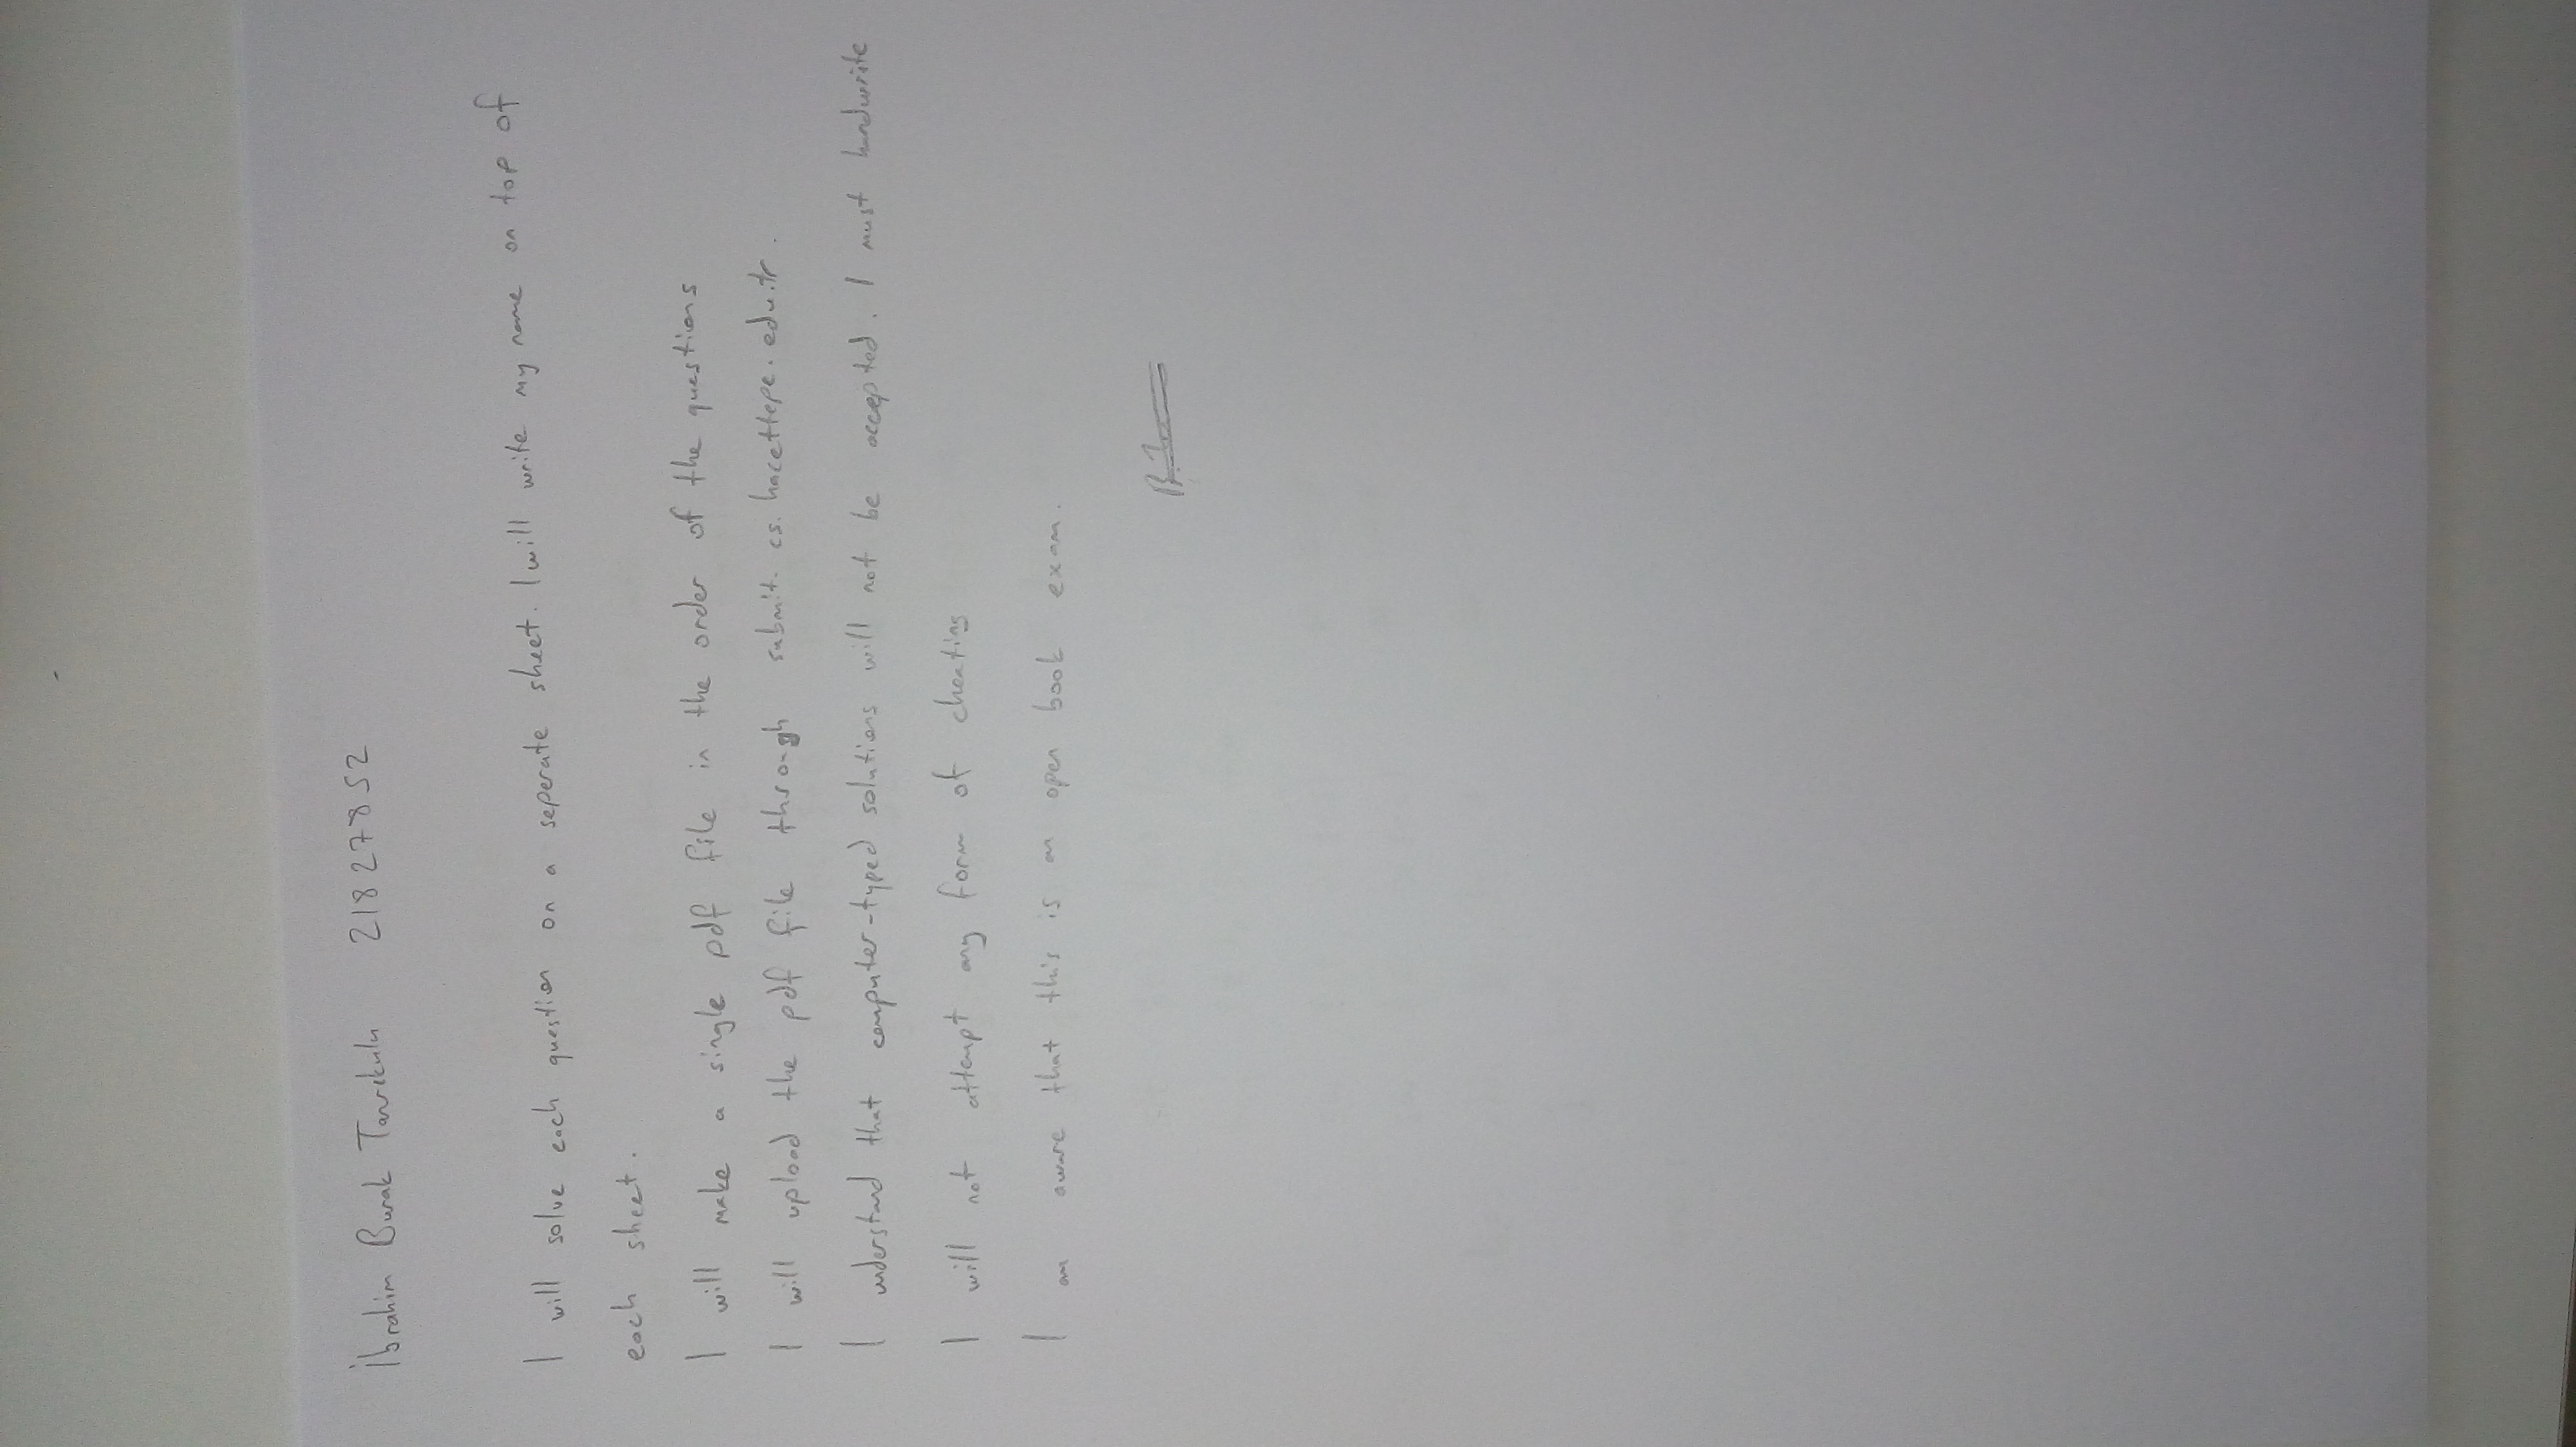 İbrahim Burak Tanrıkulu 21827852
I will solve each question on a seperate sheet. I will write my name on top of
each sheet.
I will make a single pdf file in the order of the questions
I will upload the pdf file through submit.cs.hacettepe.edu.tr.
I understand that computer-typed solutions will not be accepted. I must handwrite
I will not attempt any form of cheating
I am aware that this is an open book exam.